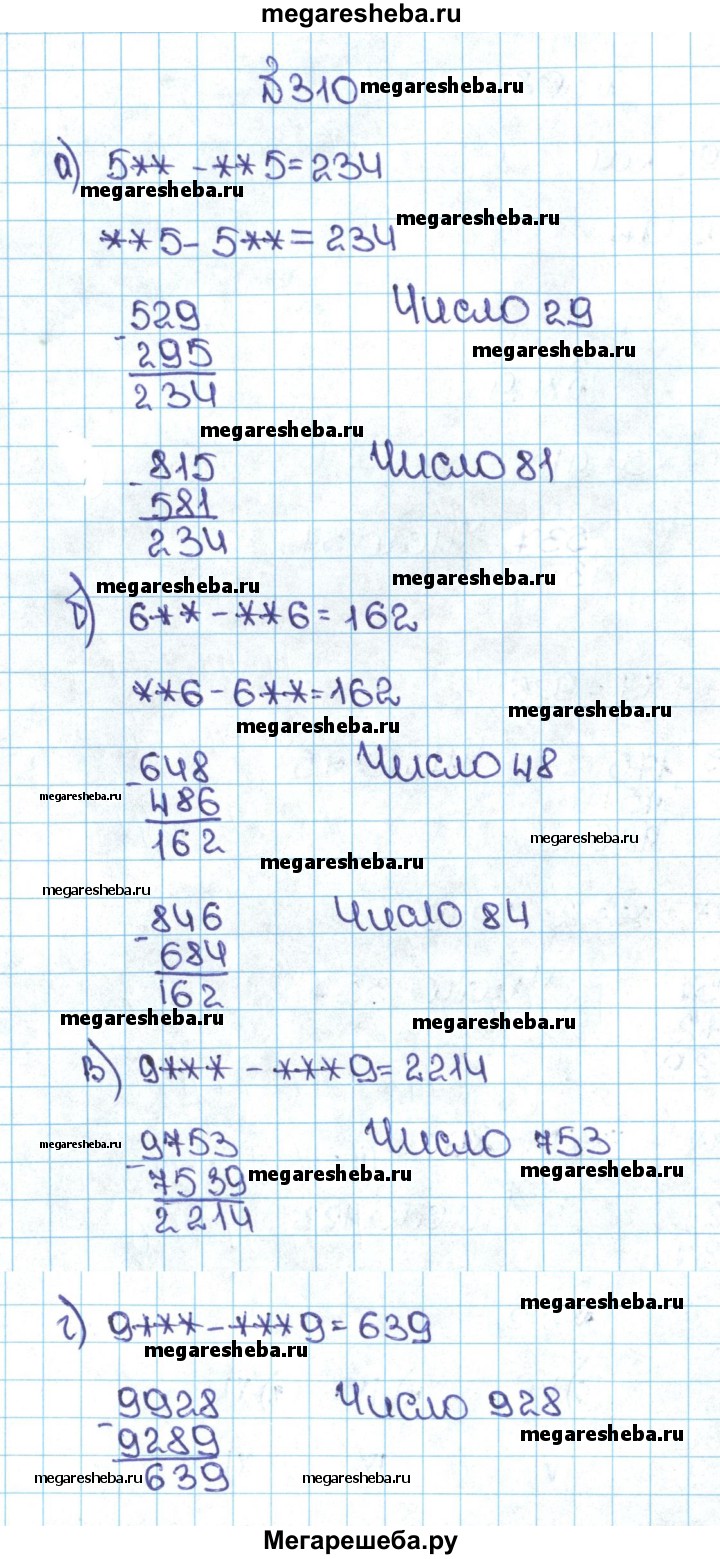 megaresheba.ru
№310 megaresheba.ru
а) 5** - **5 = 234
megaresheba.ru
megaresheba.ru
**5 - 5** = 234
529 Число 29
- 295 megaresheba.ru
234
megaresheba.ru
815 Число 81
- 581
234
megaresheba.ru megaresheba.ru
б) 6** - **6 = 162
**6 - 6** = 162
megaresheba.ru
megaresheba.ru
648 Число 48
megaresheba.ru - 486
162 megaresheba.ru
megaresheba.ru
megaresheba.ru
846 Число 84
- 684
162
megaresheba.ru megaresheba.ru
в) 9*** - ***9 = 2214
megaresheba.ru 9753 Число 753
- 7539 megaresheba.ru megaresheba.ru
2214
megaresheba.ru
г) 9*** - ***9 = 639
megaresheba.ru
9928 Число 928
- 9289 megaresheba.ru
megaresheba.ru 639 megaresheba.ru
Мегарешеба.ру